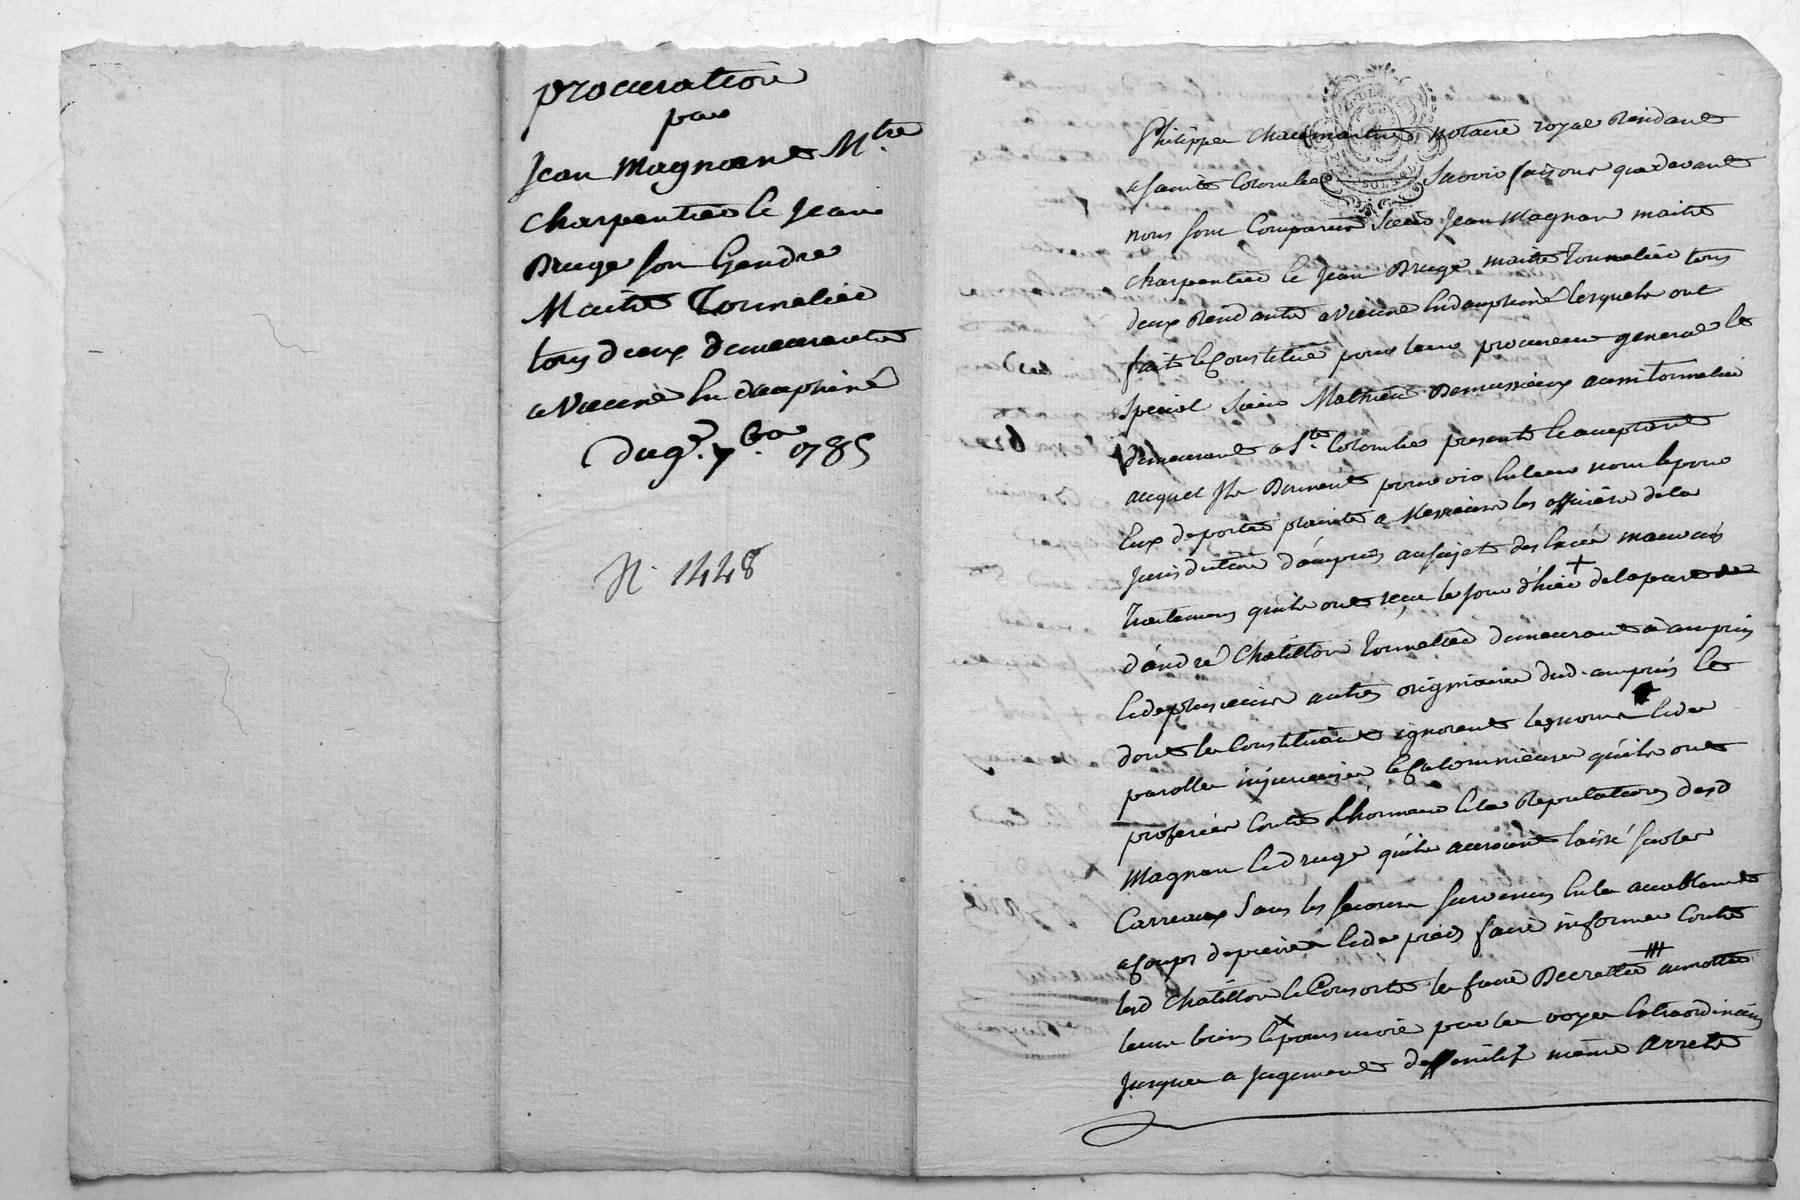 procuration
par
Jean Magnant M.tre
charpentier & Jean
Druge son Gendre
Maitre Tonnelier
tous deux demeurants
a Vienne En dauphiné
du 9.e 7.bre 1785
N. 1448
Philippe notaire royal Residant
a sainte Colombe Savoir faisons que devant
nous sont Comparus Sieur Jean Magnan maitre
charpentier & Jean Druge maitre Tonnelier tous
deux Residants a Vienne En dauphiné lesquels ont
fait & Constitué pour leur procureur general &
special Sieur Mathieu aussi tonnelier
demeurant a S.te Colombe present & acceptant
auquel Ils Donnent pouvoir En leur nom & pour
Eux de porter plainte a Messieurs les officiers de la
Jurisdiction d'ampuis au sujet des Excès mauvais
Traitemens qu'ils ont reçu le jour d'hier + de la part
d'andré Chatillon Tonnelier demeurant a d'ampuis
& de plusieurs autres originaire dud. ampuis &
dont les Constituants ignorent les noms & de
parolles injurieuses & Calomnieuses qu'ils ont
proferées Contre L'honneur & la Reputation desd
Magnan & Druge qu'ils auroient laissé sur les
Carreaux Sans les secours survenus En les accablants
a Coups de pierres & de pieds faire informer Contre
led Chatillon & Consorts les faire Decretter annotter
leurs biens & poursuivre par la voye Extraordinaire
Jusques a Jugement deffinitif même arrets